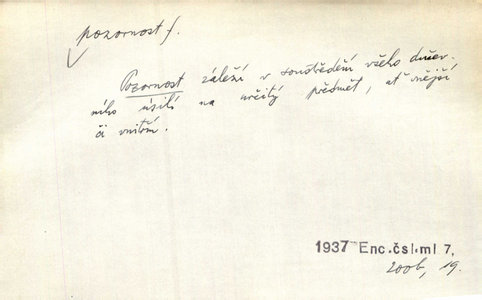 pozornost f.
Pozornost záleží v soustředění všeho dušev-
ního úsilí na určitý předmět, ať vnější
či vnitřní.
1937 Enc. čsl. ml 7,
200b, 19.